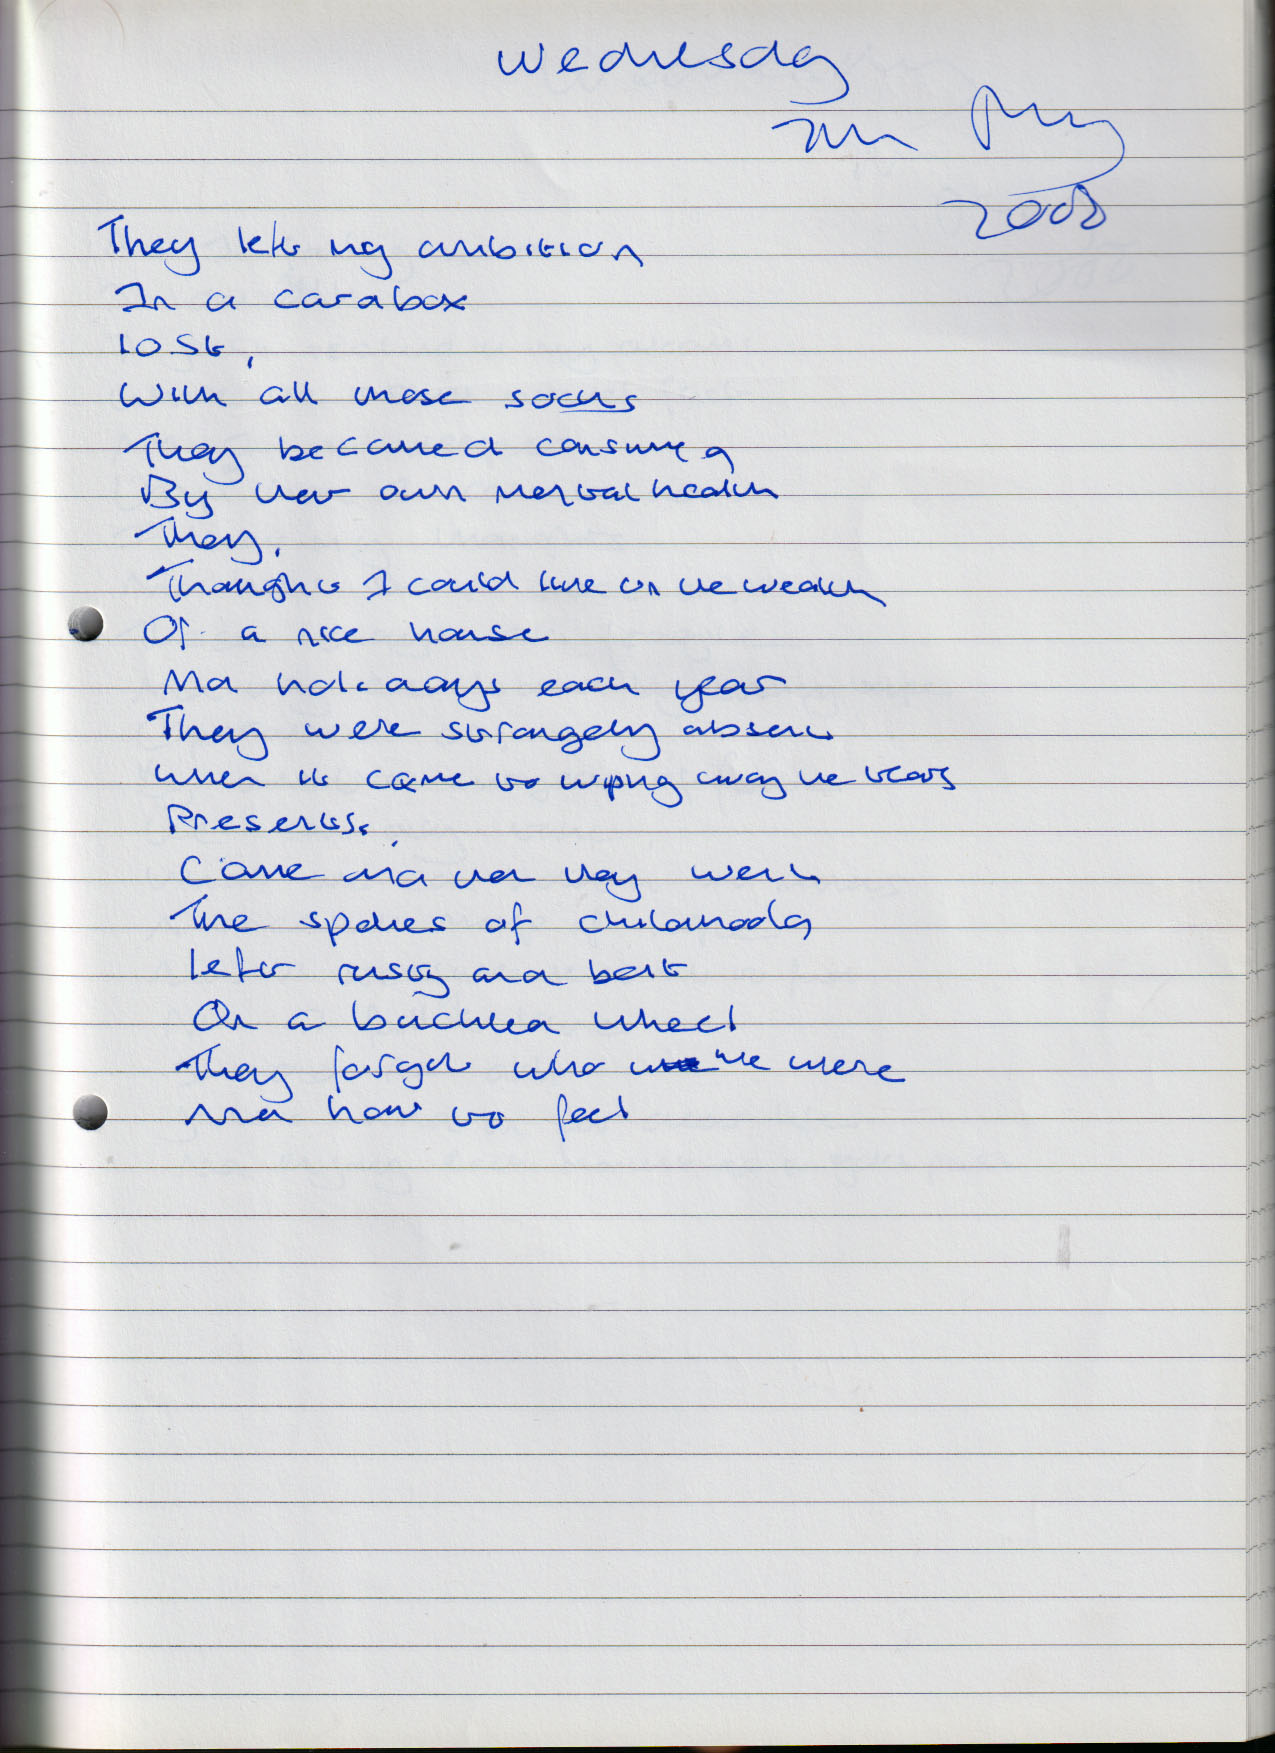 Wednesday
7th May
2008
They left my ambition
In a cardbox
lost,
With all those socks
They became d consumed
By their own mental health
They,
Thought I could live on the wealth
Of a nice house
And holidays each year
They were strangely absent
When it came to wiping away the tears
Presents,
Came and then they went
The spokes of childhood
left rusty and bent
On a buckled wheel
They forgot who we were
And how to feel